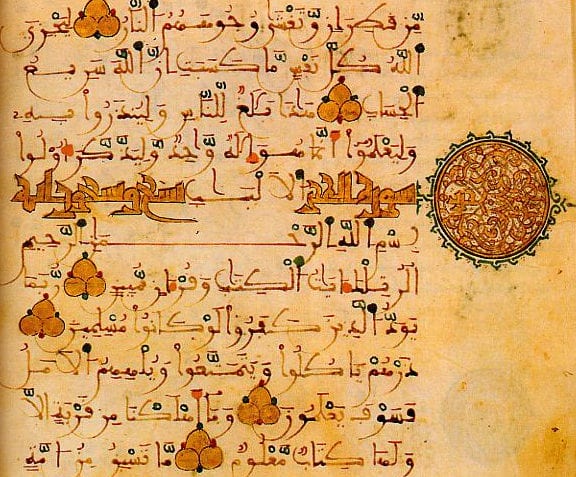 مّن قطران وّتغشى وجوههم النّار ليجزي
الله كلّ نفس مّا كسبت انّ الله سريع
الحساب هذا بلغ للنّاس ولينذروا به
وليعلموا انّما هو اله وّاحد وليذّكّر اولوا
سورة الحجر الالبب تسع وتسعون اية
بسم الله الرّحمن الرّحيم
الر تلك ايت الكتب وقرءان مّبين رّبما
يودّ الّذين كفروا لو كانوا مسلمين
ذرهم ياكلوا ويتمتّعوا ويلههم الامل
فسوف يعلمون وما اهلكنا من قرية الاّ
ولها كتاب مّعلوم مّا تسبق من امّة